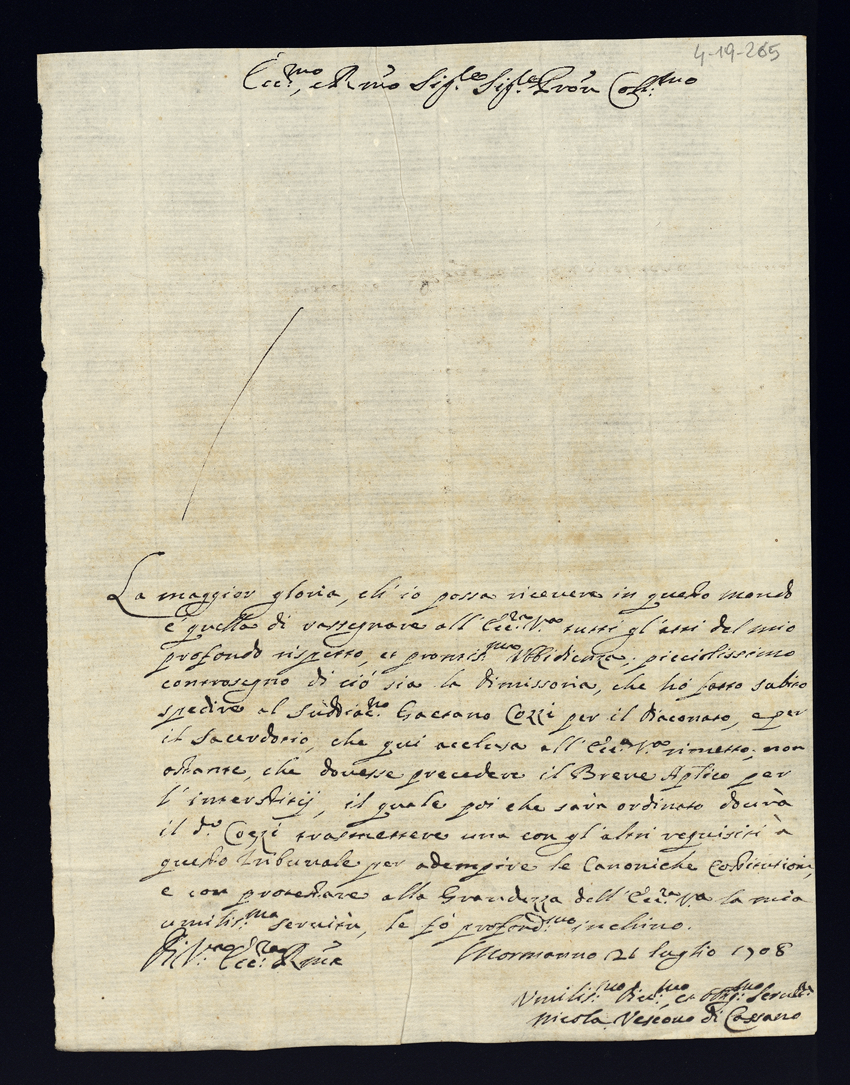 4-19-265
Ecc.mo, e R.mo Sig.re Sig.re Pron Coll.mo
La maggior gloria, ch'io possa ricevere in questo mondo
è quella di rassegnare all'Ecc.za V.ra tutti gl'atti del mio
profondo rispetto, et prontis.ma Ubbidienza; picciolissimo
contrasegno di ciò sia la Dimissoria, che hò fatto subito
spedire al Suddiac.no Gaetano Cozzi per il Diaconato, e per
il Sacerdotio, che qui acclusa all'Ecc.a V.ra rimetto; non
ostante, che dovesse precedere il Breve Aplico per
l'interstitij, il quale poi che sarà ordinato dovrà
il d.o Cozzi trasmettere una con gl'altri requisiti à
questo Tribunale per adempire le Canoniche Costitutioni,
e con protestare alla Grandezza dell'Ecc.za V.ra la mia
umilis.ma servitù, le fò profond.mo inchino.
Di V.ra Ecc.za R.ma
Mormanno 21 luglio 1708
Umilis.mo Dev.mo, et Obbg.mo Serv.re
Nicola Vescovo di Cassano